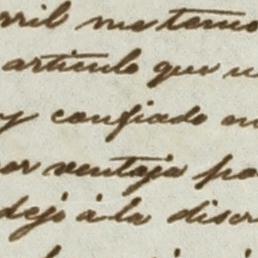 rril me tomo
articulo que
y confiado en
or ventaja po
dejo á la discr